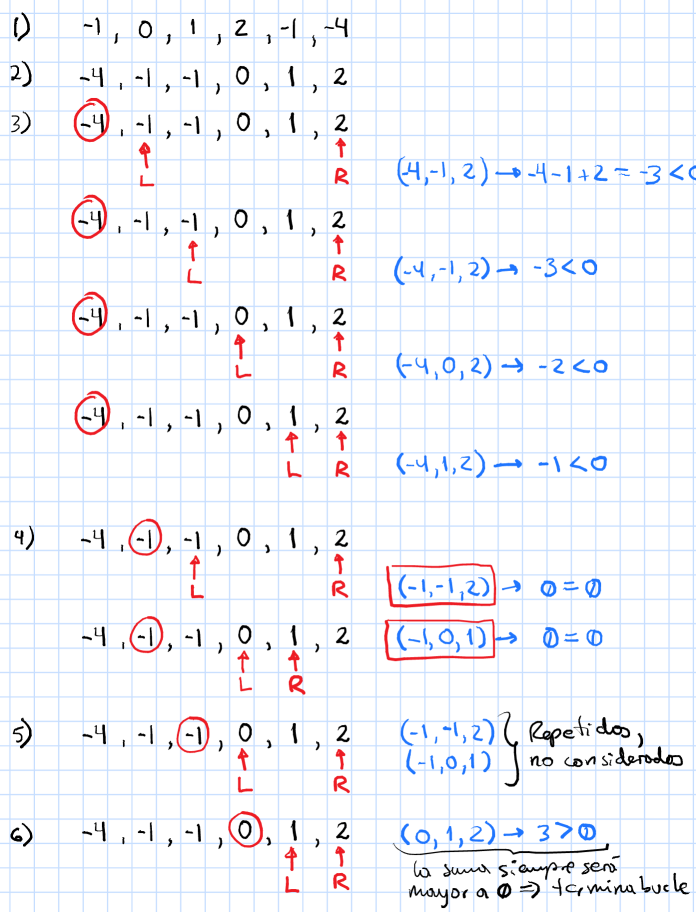 1) -1, 0, 1, 2, -1, -4
2) -4, -1, -1, 0, 1, 2
3) -4, -1, -1, 0, 1, 2
L R (-4,-1,2) → -4-1+2 = -3 < 0
-4, -1, -1, 0, 1, 2
L R (-4,-1,2) → -3 < 0
-4, -1, -1, 0, 1, 2
L R (-4,0,2) → -2 < 0
-4, -1, -1, 0, 1, 2
L R (-4,1,2) → -1 < 0
4) -4, -1, -1, 0, 1, 2
L R (-1,-1,2) → 0 = 0
-4, -1, -1, 0, 1, 2 (-1,0,1) → 0 = 0
L R
5) -4, -1, -1, 0, 1, 2 (-1,-1,2) } Repetidos,
(-1,0,1) no considerados
L R
6) -4, -1, -1, 0, 1, 2 (0,1,2) → 3 > 0
la suma siempre será
L R mayor a 0 ⇒ termina bucle